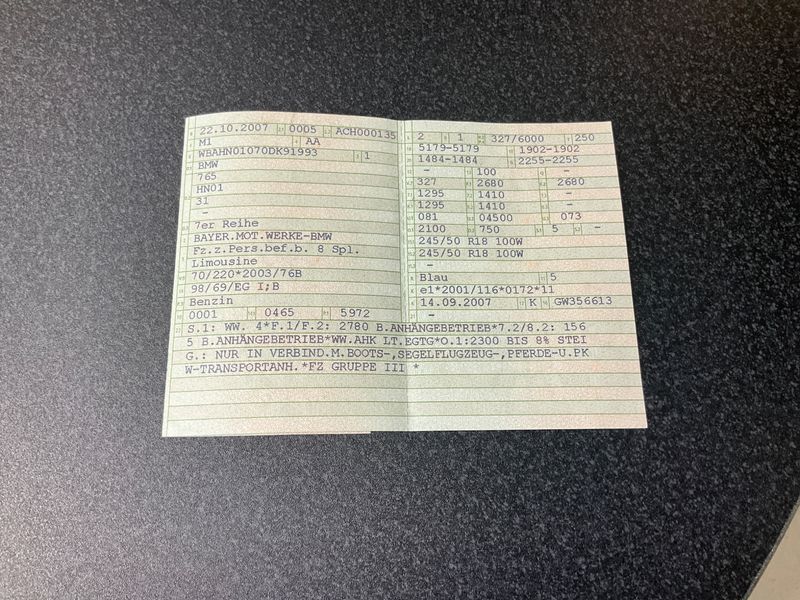 22.10.2007 0005 ACH000135
M1 AA
WBAHN01070DK91993 1
BMW
765
HN01
31
-
7er Reihe
BAYER.MOT.WERKE-BMW
Fz.z.Pers.bef.b. 8 Spl.
Limousine
70/220*2003/76B
98/69/EG I;B
Benzin
0001 0465 5972
2 1 327/6000 250
5179-5179 1902-1902
1484-1484 2255-2255
- 100 -
327 2680 2680
1295 1410 -
1295 1410 -
081 04500 073
2100 750 5 -
245/50 R18 100W
245/50 R18 100W
-
Blau 5
e1*2001/116*0172*11
14.09.2007 K GW356613
-
S.1: WW. 4*F.1/F.2: 2780 B.ANHÄNGEBETRIEB*7.2/8.2: 156
5 B.ANHÄNGEBETRIEB*WW.AHK LT.EGTG*O.1:2300 BIS 8% STEI
G.: NUR IN VERBIND.M.BOOTS-,SEGELFLUGZEUG-,PFERDE-U.PK
W-TRANSPORTANH.*FZ GRUPPE III *